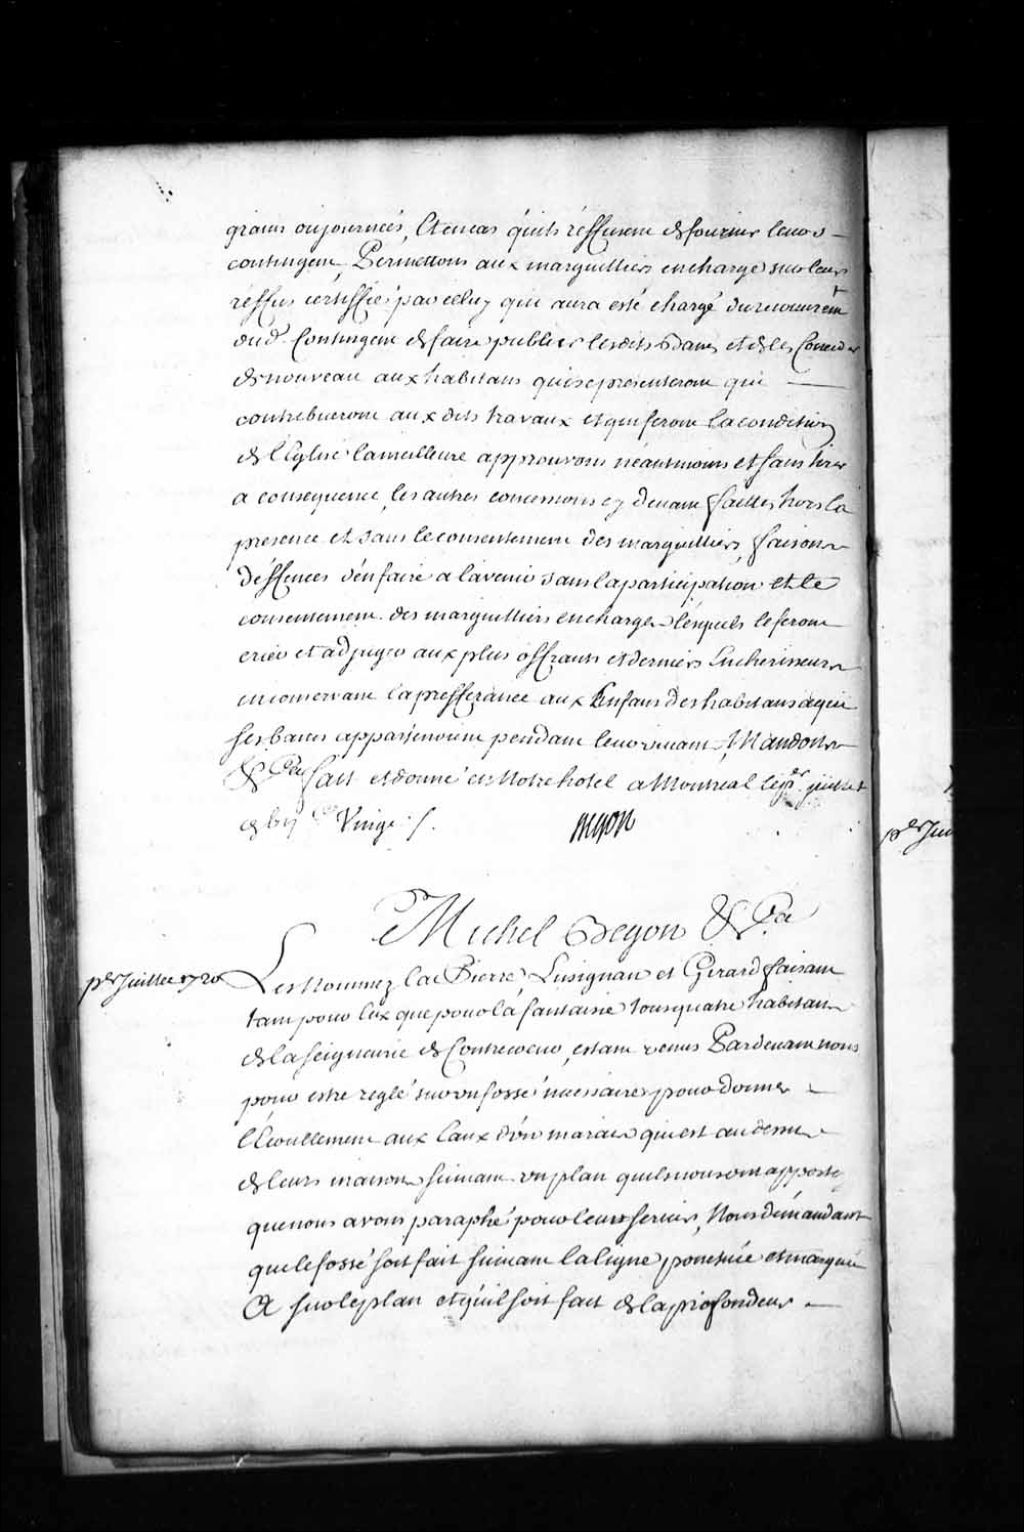 grains ou journeés, Et en cas qu'ils réffusent de fournir leurs
contingent, Permettons aux marguilliers en charge sur leurs
réffus certiffié par celuy qui aura esté chargé du recouvrem.t
dud. Contingent de faire publier lesdits bancs et de les Conceder
de nouveau aux habitans qui se presenteront qui
contribueront aux dits travaux et qui feront la condition
de l'Eglise la meilleure approuvons néantmoins et sans tirer
a consequence, les autres concessions cy devant faittes hors la
presence et sans le consentement des marguilliers, faisons
déffences d'en faire a l'avenir sans la participation et le
consentement des marguilliers en charge, lésquels le feront
crier et adjuger aux plus offrants et derniers Encherisseurs
en conservant la préfférance aux Enfans des habitans a qui
ses bancs appartenoient pendant leur vivant, Mandons
&c.a fait et donné en Notre hotel a Montreal le p.er juillet
Vingt /.
Begon
Michel Begon &c.a
p.er Juillet 1720
Les Nommez la Pierre, Lusignan et Girard faisant
tant pour Eux que pour la fantaisie tous quatre habitans
de la seigneurie de Contrecoeur, estant venus Pardevant nous
pour estre reglé sur un fossé nécessaire pour donner
l'Ecoullement aux Eaux d'un marais qui est au dessus
de leurs maisons suivant un plan quils nous ont apporté
que nous avons paraphé pour leur servir, Nous démandant
que le fossé soit fait suivant la ligne ponctuée et marquée
A sur le plan et qu'il soit fait de la profondeur
p.er Jui